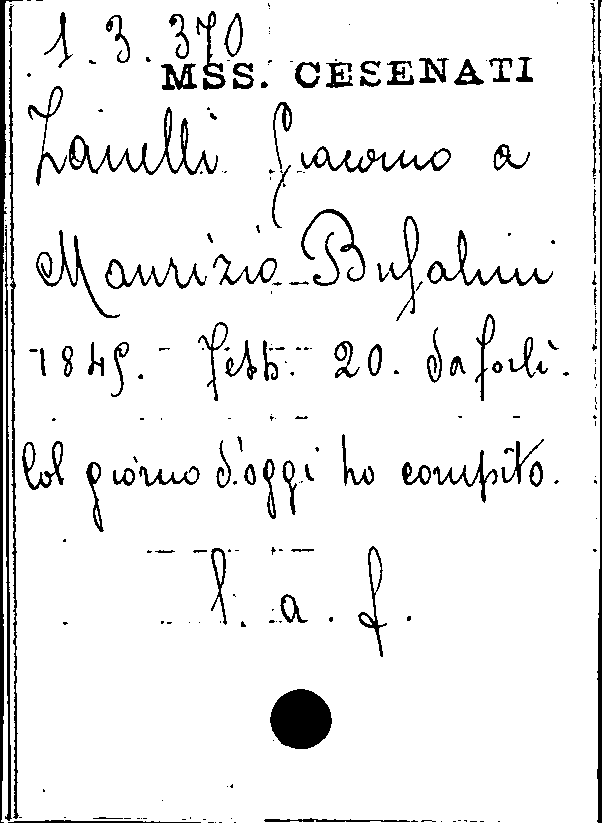 1.3.370
MSS. CESENATI
Zanelli Giacomo a
Maurizio Bufalini
1845. Febb. 20. da Forlì.
Col giorno d'oggi ho compito.
l. a. f.